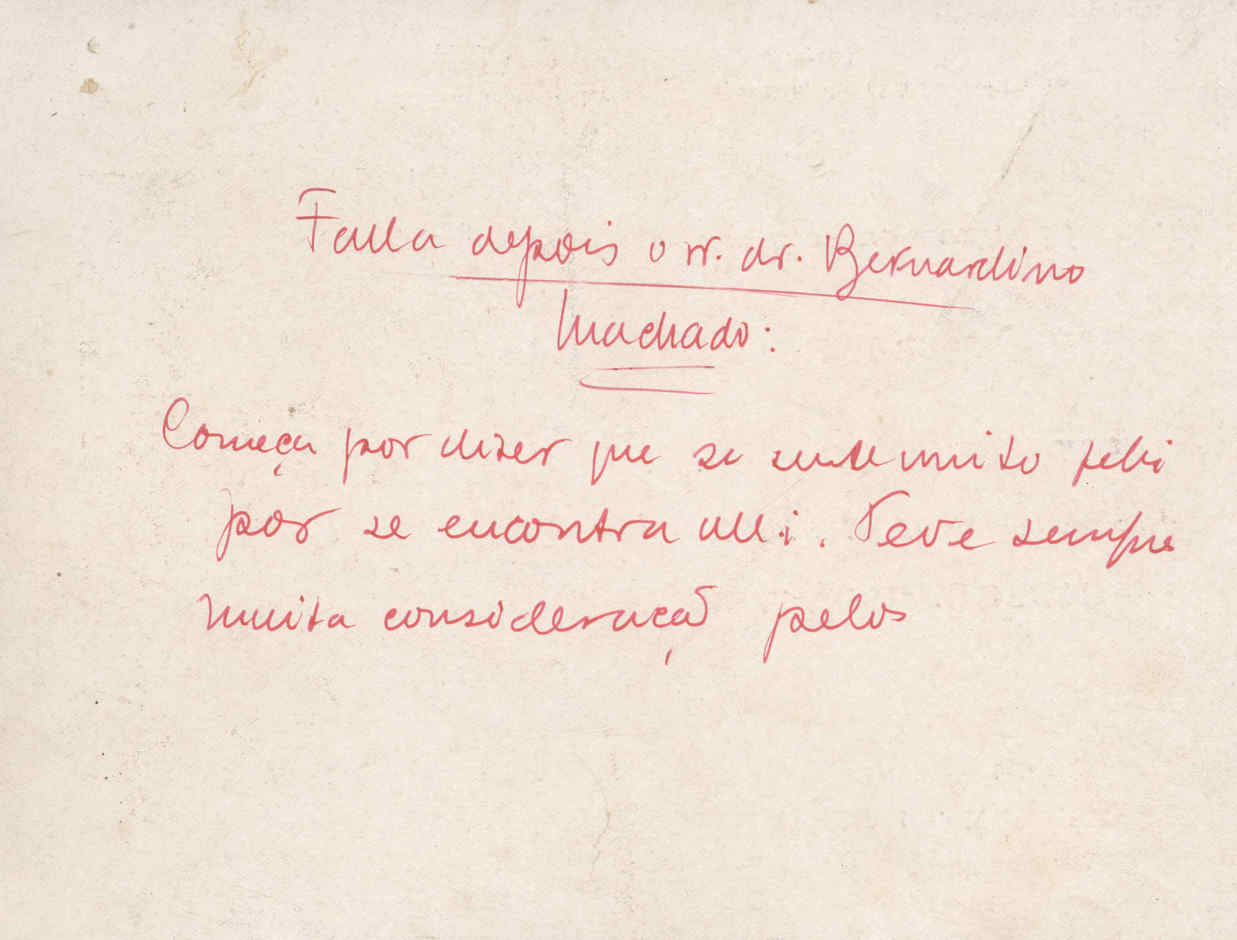 Falla depois o sr. dr. Bernardino
Machado:
Começa por dizer que se sente muito feliz
por se encontrar alli. Teve sempre
muita consideração pelos